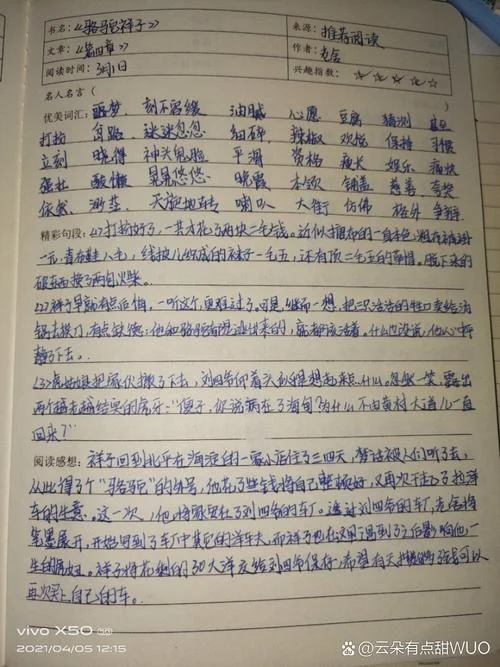 书名:《骆驼祥子》
来源:推荐阅读
文章:《第四章》
作者:老舍
阅读时间:3月1日
兴趣指数:☆☆☆☆☆
名人名言(
优美词汇: 噩梦、刻不容缓 油腻 心愿 豆腐 猜测 甚至
打扮 岔路 迷迷忽忽 细碎 辣椒 欢悦 保持 习惯
立刻 晓得 神头鬼脸 平滑 资格 瘦长 娱乐 痛快
强壮 酸懒 晃晃悠悠 晚霞 本领 铺盖 慈善 夸奖
依然 渺茫 天旋地转 喇叭 大街 仿佛 格外 争辩
精彩句段:(1)打扮好了,一共才花了两块二毛钱。近似搪布的一身本色粗布裤褂
一元,青布鞋八毛,线披儿织成的袜子一毛五,还有顶二毛五的草帽。脱下来的
破东西换了两包火柴。
(2)祥子早就有点后悔,一听这个,更难过了。可是,继而一想,把三只活活的牲口卖给汤
锅去挨刀,有点缺德;他和骆驼都是逃出来的,就都该活着。什么也没说,他心中平
静了下去。
(3)虎妞把家伙撤下去,刘四爷仰着头似乎是想起来点什么。忽然一笑,露出
两个越老越结实的虎牙:“傻子,你说病在了海甸?为什么不由黄村大道儿一直
回来?”
阅读感想: 祥子回到北平在海淀的一家小店住了三四天,梦话被人们听了去,
从此得了个“骆驼”的外号,他花了些钱将自己整顿好,又再次干起了拉洋
车的生意。这一次,他将歇息在了刘四爷的车厂。通过刘四爷的车厂,老舍将
笔墨展开,开始写到了车厂中其它的洋车夫,而祥子也在这里遇到了之后影响他一
生的虎妞。祥子将花剩的30大洋交给刘四爷保存,希望有天
再次买上自己的车。
vivo X50 · 5G
2021/04/05 12:15
@云朵有点甜WUO